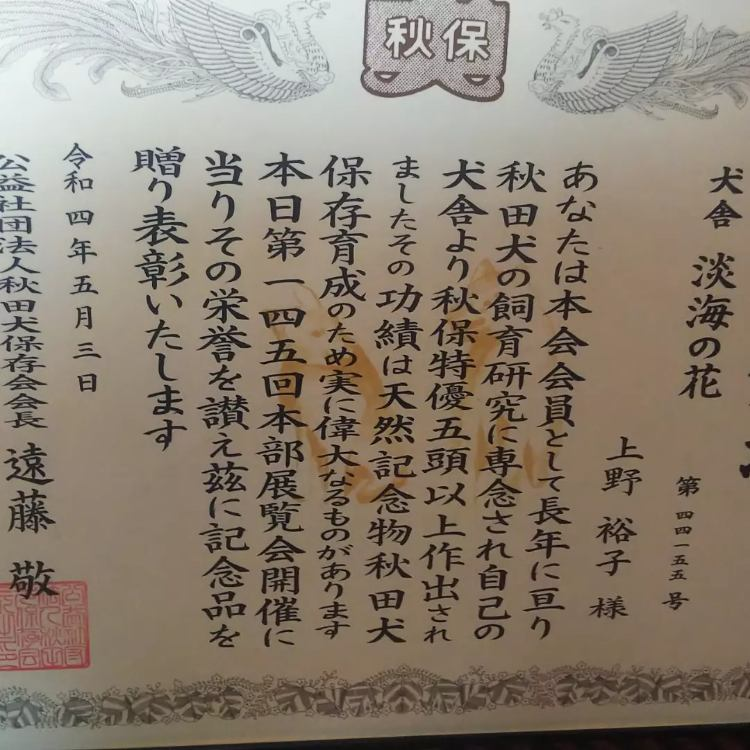 秋保
犬舎 淡海の花
第四四一五五号
上野裕子様
あなたは本会会員として長年に亘り
秋田犬の飼育研究に専念され自己の
犬舎より秋保特優五頭以上作出され
ましたその功績は天然記念物秋田犬
保存育成のため実に偉大なるものがあります
本日第一四五回本部展覧会開催に
当りその栄誉を讃え茲に記念品を
贈り表彰いたします
令和四年五月三日
公益社団法人秋田犬保存会会長 遠藤敬